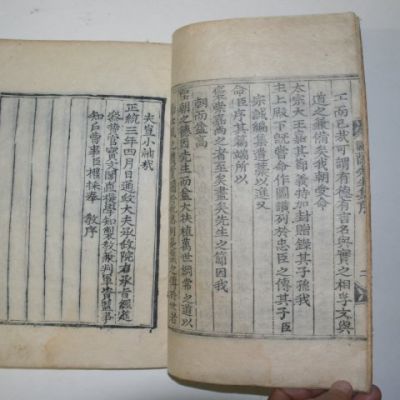 工而已哉可謂有德有言名與實之相孚文與
道之兼備矣我朝受命
太宗大王嘉其節義特加封贈錄其子孫我
主上殿下旣嘗命作圖讚列於忠臣之傳其子臣
宗誠編集遺藁以進又
命臣序其篇端所以
崇嘉尚之者至矣盡矣先生之節因我
朝而益高
聖朝之德因先生而益大扶植萬世綱常之道以
之傳於世者
夫豈小補哉
正統三年四月日通政大夫承政院右承旨經筵
參贊官寶文閣直提學知製敎兼判軍資監事
知戶曹事臣權採奉 敎序